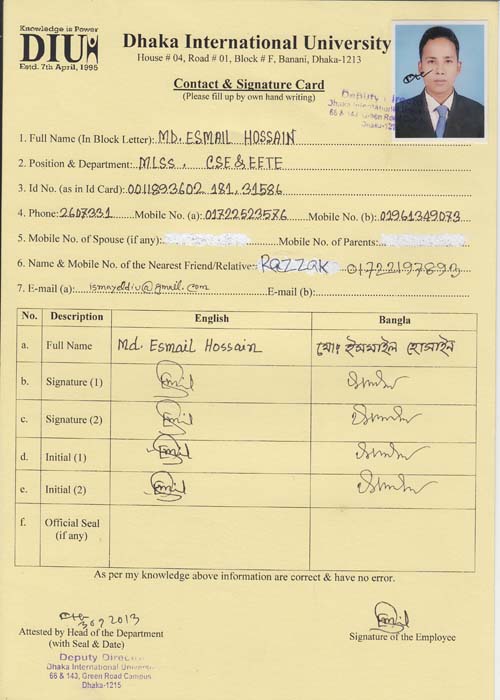 Knowledge is Power
DIU
Estd. 7th April, 1995
Dhaka International University
House # 04, Road # 01, Block # F, Banani, Dhaka-1213
Contact & Signature Card
(Please fill up by own hand writing)
Deputy Dire
Dhaka International
66 & 143, Green Road
Dhaka-1215
1. Full Name (In Block Letter): MD. ESMAIL HOSSAIN
2. Position & Department: MLSS, CSE & EETE
3. Id No. (as in Id Card): 0011893602 181, 31586
4. Phone: 2607331 Mobile No. (a): 01722523576 Mobile No. (b): 01961349073
5. Mobile No. of Spouse (if any): Mobile No. of Parents:
6. Name & Mobile No. of the Nearest Friend/Relative: RAZZAK 01722197893
7. E-mail (a): @gmail.com E-mail (b):
No. Description English Bangla
a. Full Name Md. Esmail Hossain মোঃ ইসমাইল হোসাইন
b. Signature (1)
c. Signature (2)
d. Initial (1)
e. Initial (2)
f. Official Seal
(if any)
As per my knowledge above information are correct & have no error.
Attested by Head of the Department
(with Seal & Date)
Signature of the Employee
Deputy Direc
Dhaka International Univers
66 & 143, Green Road Campus
Dhaka-1215